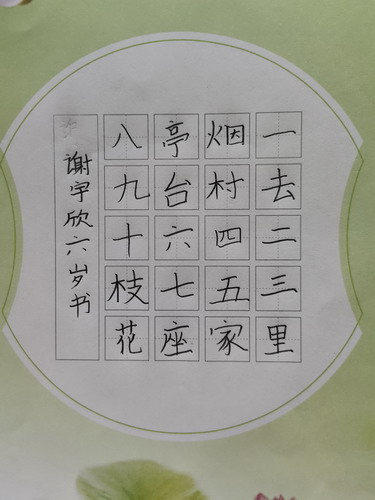 一去二三里
烟村四五家
亭台六七座
八九十枝花
谢宇欣六岁书